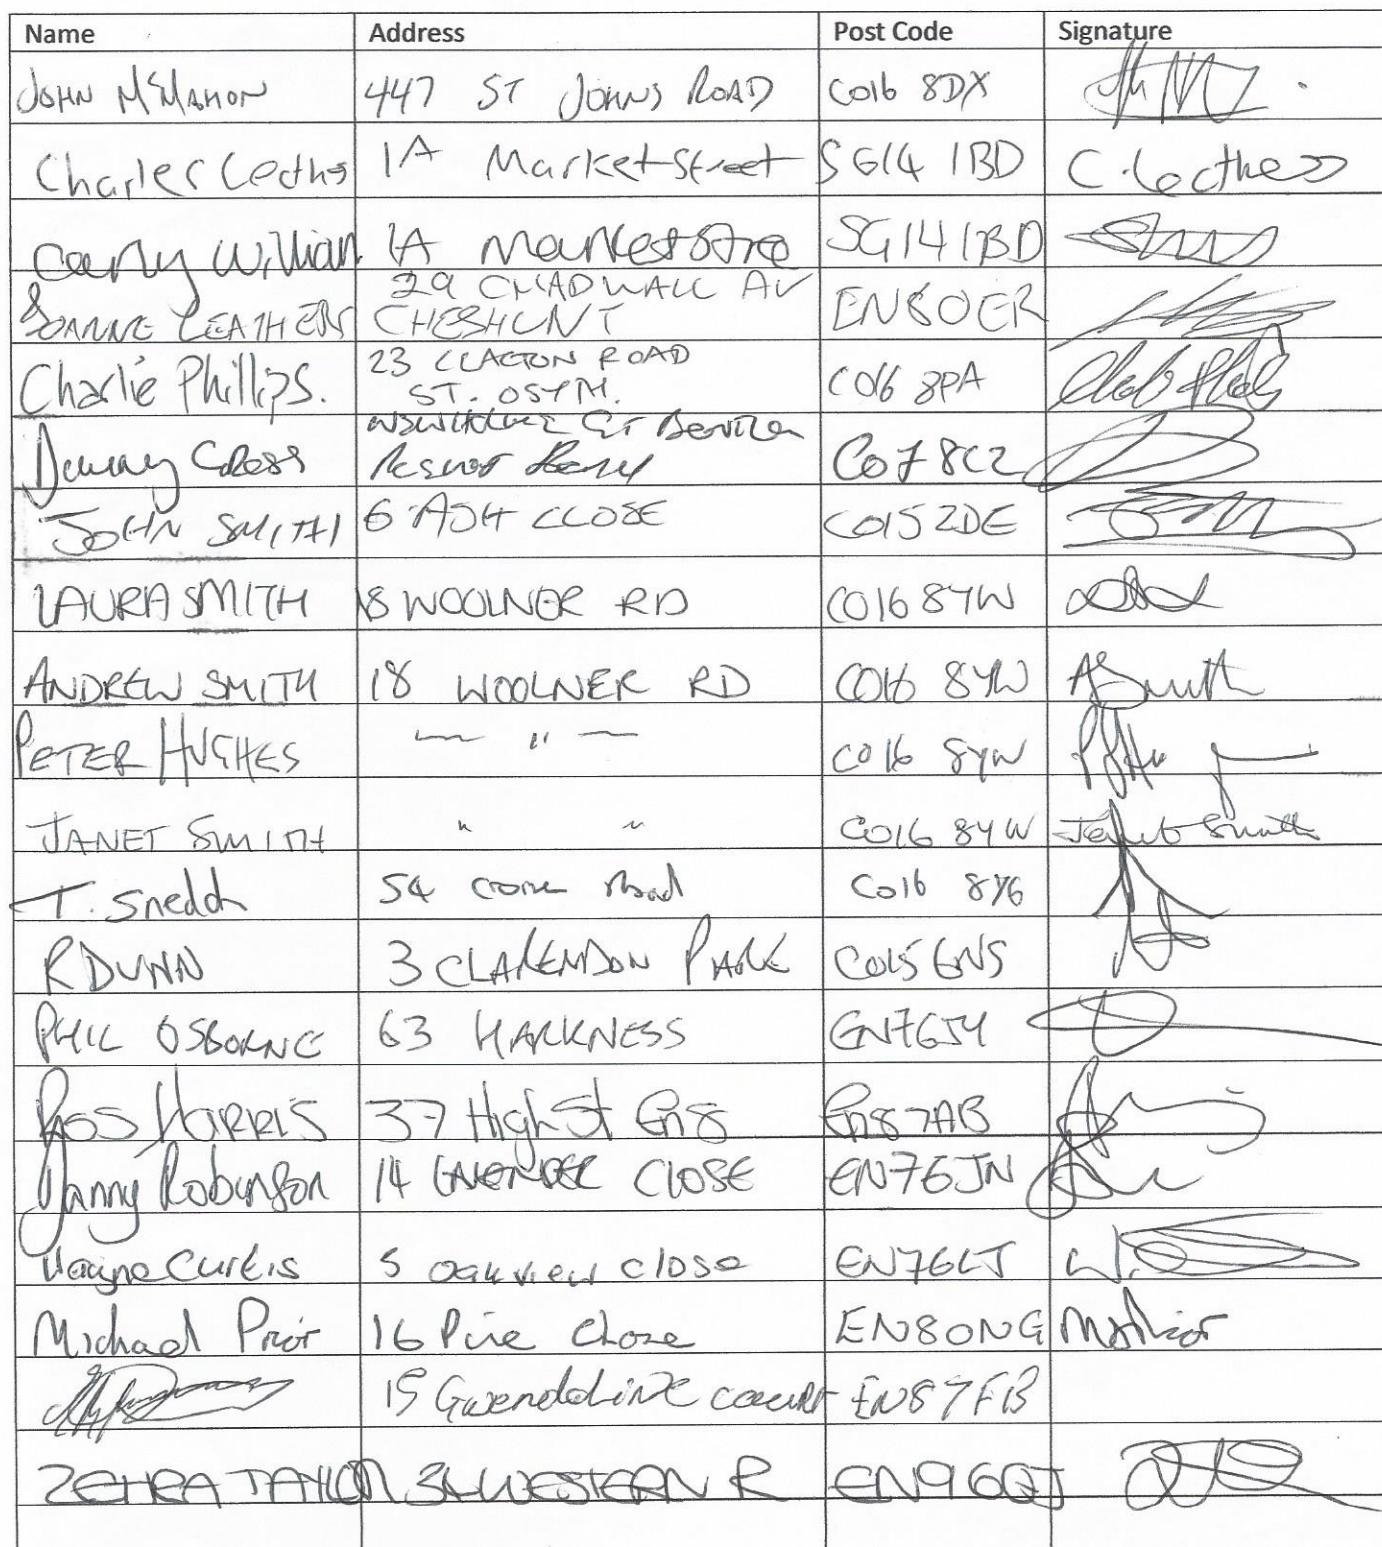 Name Address Post Code Signature
JOHN McMAHON 447 ST JOHNS ROAD CO16 8DX
Charles Leathes 1A Market Street SG14 1BD C. Leathes
Carly William 1A Market Stree SG14 1BD
29 CHADWALL AV
JOANNE LEATHERS CHESHUNT EN8 0ER
23 CLACTON ROAD
Charlie Phillips. ST. OSYTH. CO16 8PA
Danny Cross CO7 8CZ
JOHN SMITH 6 ASH CLOSE CO15 2DE
LAURA SMITH 18 WOOLNER RD CO16 8YW
ANDREW SMITH 18 WOOLNER RD CO16 8YW ASmith
PETER HUGHES — " — CO16 8YW
JANET SMITH " " CO16 8YW Janet Smith
T. Snedd 54 Road CO16 8YG
R DUNN 3 CLARENDON PARK CO15 6NS
PHIL OSBORNE 63 HARKNESS EN7 6JY
Ross HARRIS 37 High St En8 En8 7AB
Danny Robinson 14 CLOSE EN7 6JN
Wayne Curtis 5 Oakview close EN7 6LJ
Michael Prior 16 Pine Close EN8 0NG M Prior
15 Gwendoline court EN8 7FB
ZEHRA TAYLOR 34 WESTERN R EN9 6QJ